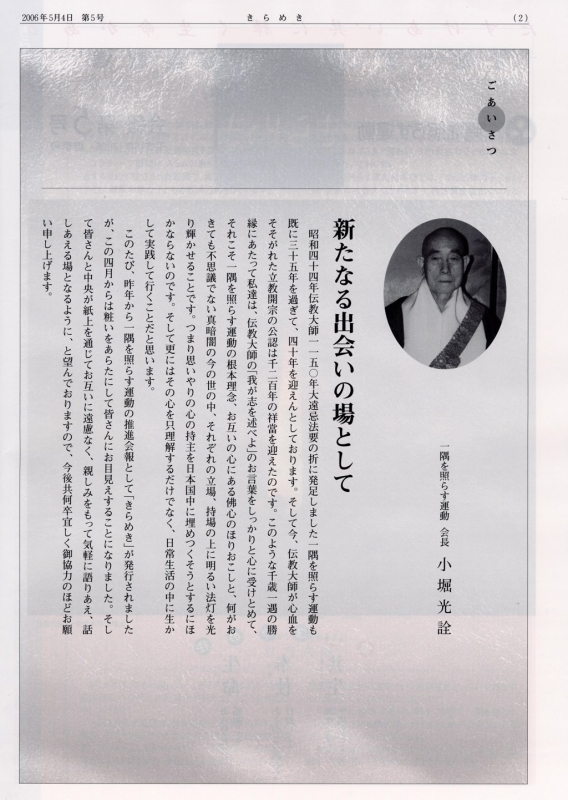 2006年5月4日 第5号
きらめき
(2)
ごあいさつ
一隅を照らす運動 会長 小堀光詮
新たなる出会いの場として
昭和四十四年伝教大師一一五〇年大遠忌法要の折に発足しました一隅を照らす運動も
既に三十五年を過ぎて、四十年を迎えんとしております。そして今、伝教大師が心血を
そそがれた立教開宗の公認は千二百年の祥當を迎えたのです。このような千歳一遇の勝
縁にあたって私達は、伝教大師の「我が志を述べよ」のお言葉をしっかりと心に受けとめて、
それこそ一隅を照らす運動の根本理念、お互いの心にある佛心のほりおこしと、何がお
きても不思議でない真暗闇の今の世の中、それぞれの立場、持場の上に明るい法灯を光
り輝かせることです。つまり思いやりの心の持主を日本国中に埋めつくそうとするにほ
かならないのです。そして更にはその心を只理解するだけでなく、日常生活の中に生か
して実践して行くことだと思います。
このたび、昨年から一隅を照らす運動の推進会報として「きらめき」が発行されました
が、この四月からは粧いをあらたにして皆さんにお目見えすることになりました。そし
て皆さんと中央が紙上を通じてお互いに遠慮なく、親しみをもって気軽に語りあえ、話
しあえる場となるように、と望んでおりますので、今後共何卒宜しく御協力のほどお願
い申し上げます。